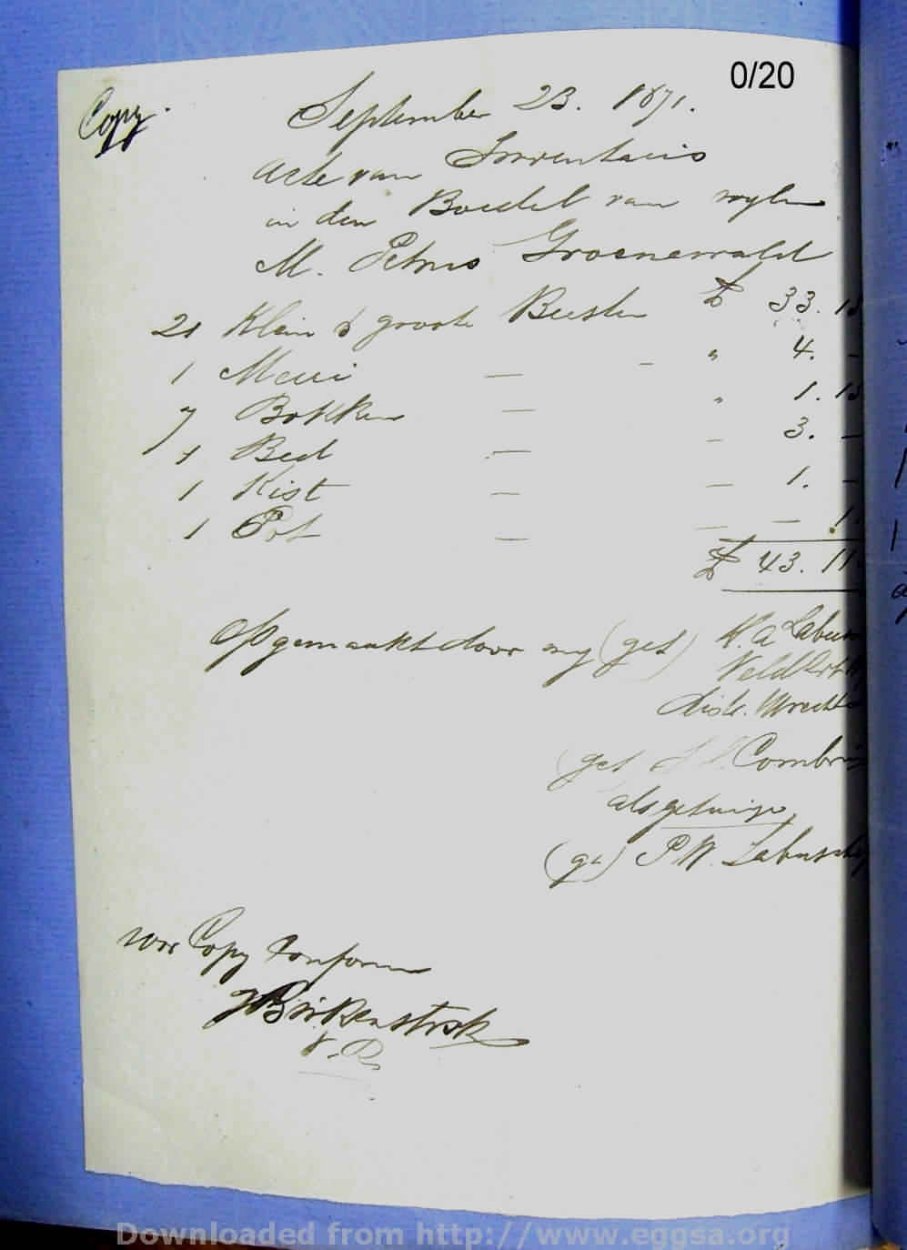 0/20
Copy.
September 23. 1871.
Acte van Inventaris
in den Boedel van wylen
M. Petrus Groenewald
21 Klein & groote Beesten £ 33.
1 Merri — - " 4. -
7 Bokken — " 1.
1 Bed — - 3. -
1 Kist — - 1. -
1 Pot — - -
£ 43. 11
Opgemaakt door my (get)
Veld
dist. Utrecht
(get
als getuige
(get) P. W.
voor Copy Conform
Birkenstock
Downloaded from http://www.eggsa.org